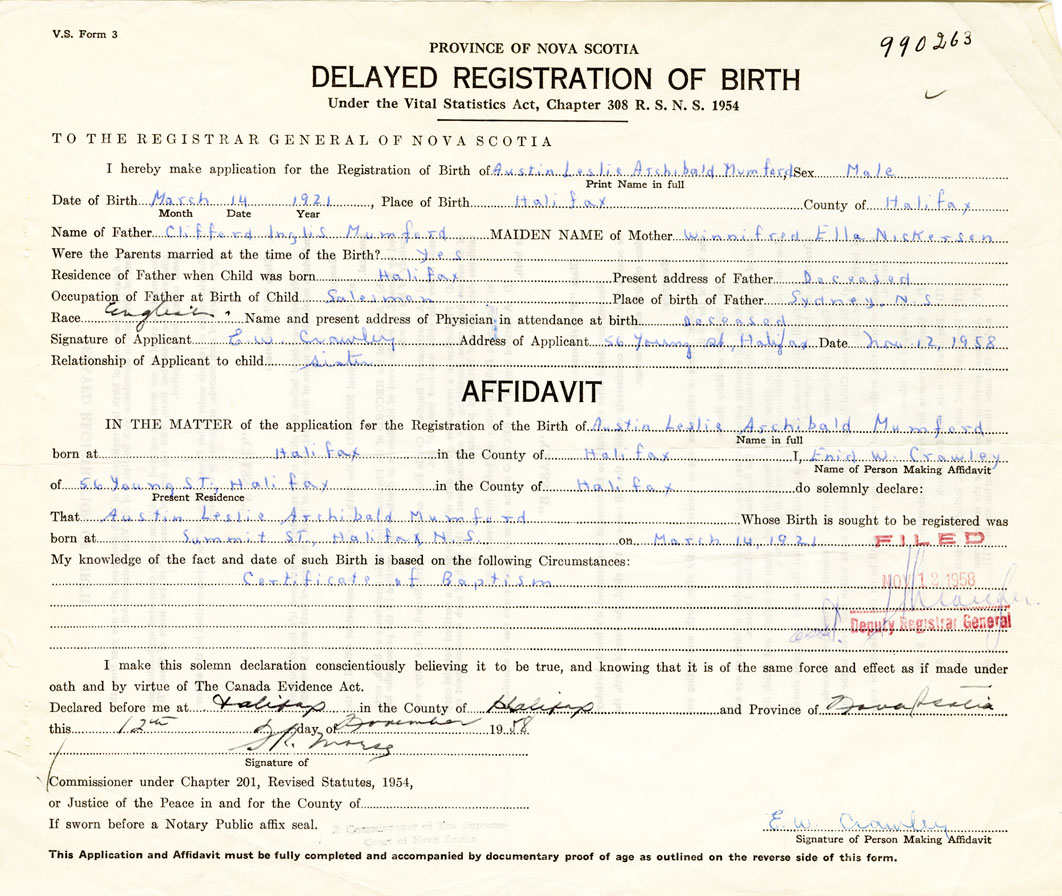 V.S. Form 3
990263
PROVINCE OF NOVA SCOTIA
DELAYED REGISTRATION OF BIRTH
Under the Vital Statistics Act, Chapter 308 R. S. N. S. 1954
TO THE REGISTRAR GENERAL OF NOVA SCOTIA
I hereby make application for the Registration of Birth of Austin Leslie Archibald Mumford, Sex Male
Print Name in full
Date of Birth March 14 1921, Place of Birth Halifax County of Halifax
Month Date Year
Name of Father Clifford Inglis Mumford MAIDEN NAME of Mother Winnifred Ella Nickersen
Were the Parents married at the time of the Birth? Yes
Residence of Father when Child was born Halifax Present address of Father Deceased
Occupation of Father at Birth of Child Salesman Place of birth of Father Sydney, N.S.
Race English. Name and present address of Physician in attendance at birth Deceased
Signature of Applicant E W Crawley Address of Applicant 56 Young St., Halifax Date Nov 12, 1958
Relationship of Applicant to child sister
AFFIDAVIT
IN THE MATTER of the application for the Registration of the Birth of Austin Leslie Archibald Mumford
Name in full
born at Halifax in the County of Halifax I, Enid W. Crawley
Name of Person Making Affidavit
of 56 Young ST., Halifax in the County of Halifax do solemnly declare:
Present Residence
That Austin Leslie Archibald Mumford Whose Birth is sought to be registered was
born at Summit ST., Halifax N.S. on March 14, 1921
FILED
My knowledge of the fact and date of such Birth is based on the following Circumstances:
Certificate of Baptism
NOV 12 1958
Deputy Registrar General
I make this solemn declaration conscientiously believing it to be true, and knowing that it is of the same force and effect as if made under
oath and by virtue of The Canada Evidence Act.
Declared before me at Halifax in the County of Halifax and Province of Nova Scotia
this 12th day of November 1958
Morse
Signature of
Commissioner under Chapter 201, Revised Statutes, 1954,
or Justice of the Peace in and for the County of
If sworn before a Notary Public affix seal.
A Commissioner of The Supreme
Court of Nova Scotia
E W Crawley
Signature of Person Making Affidavit
This Application and Affidavit must be fully completed and accompanied by documentary proof of age as outlined on the reverse side of this form.